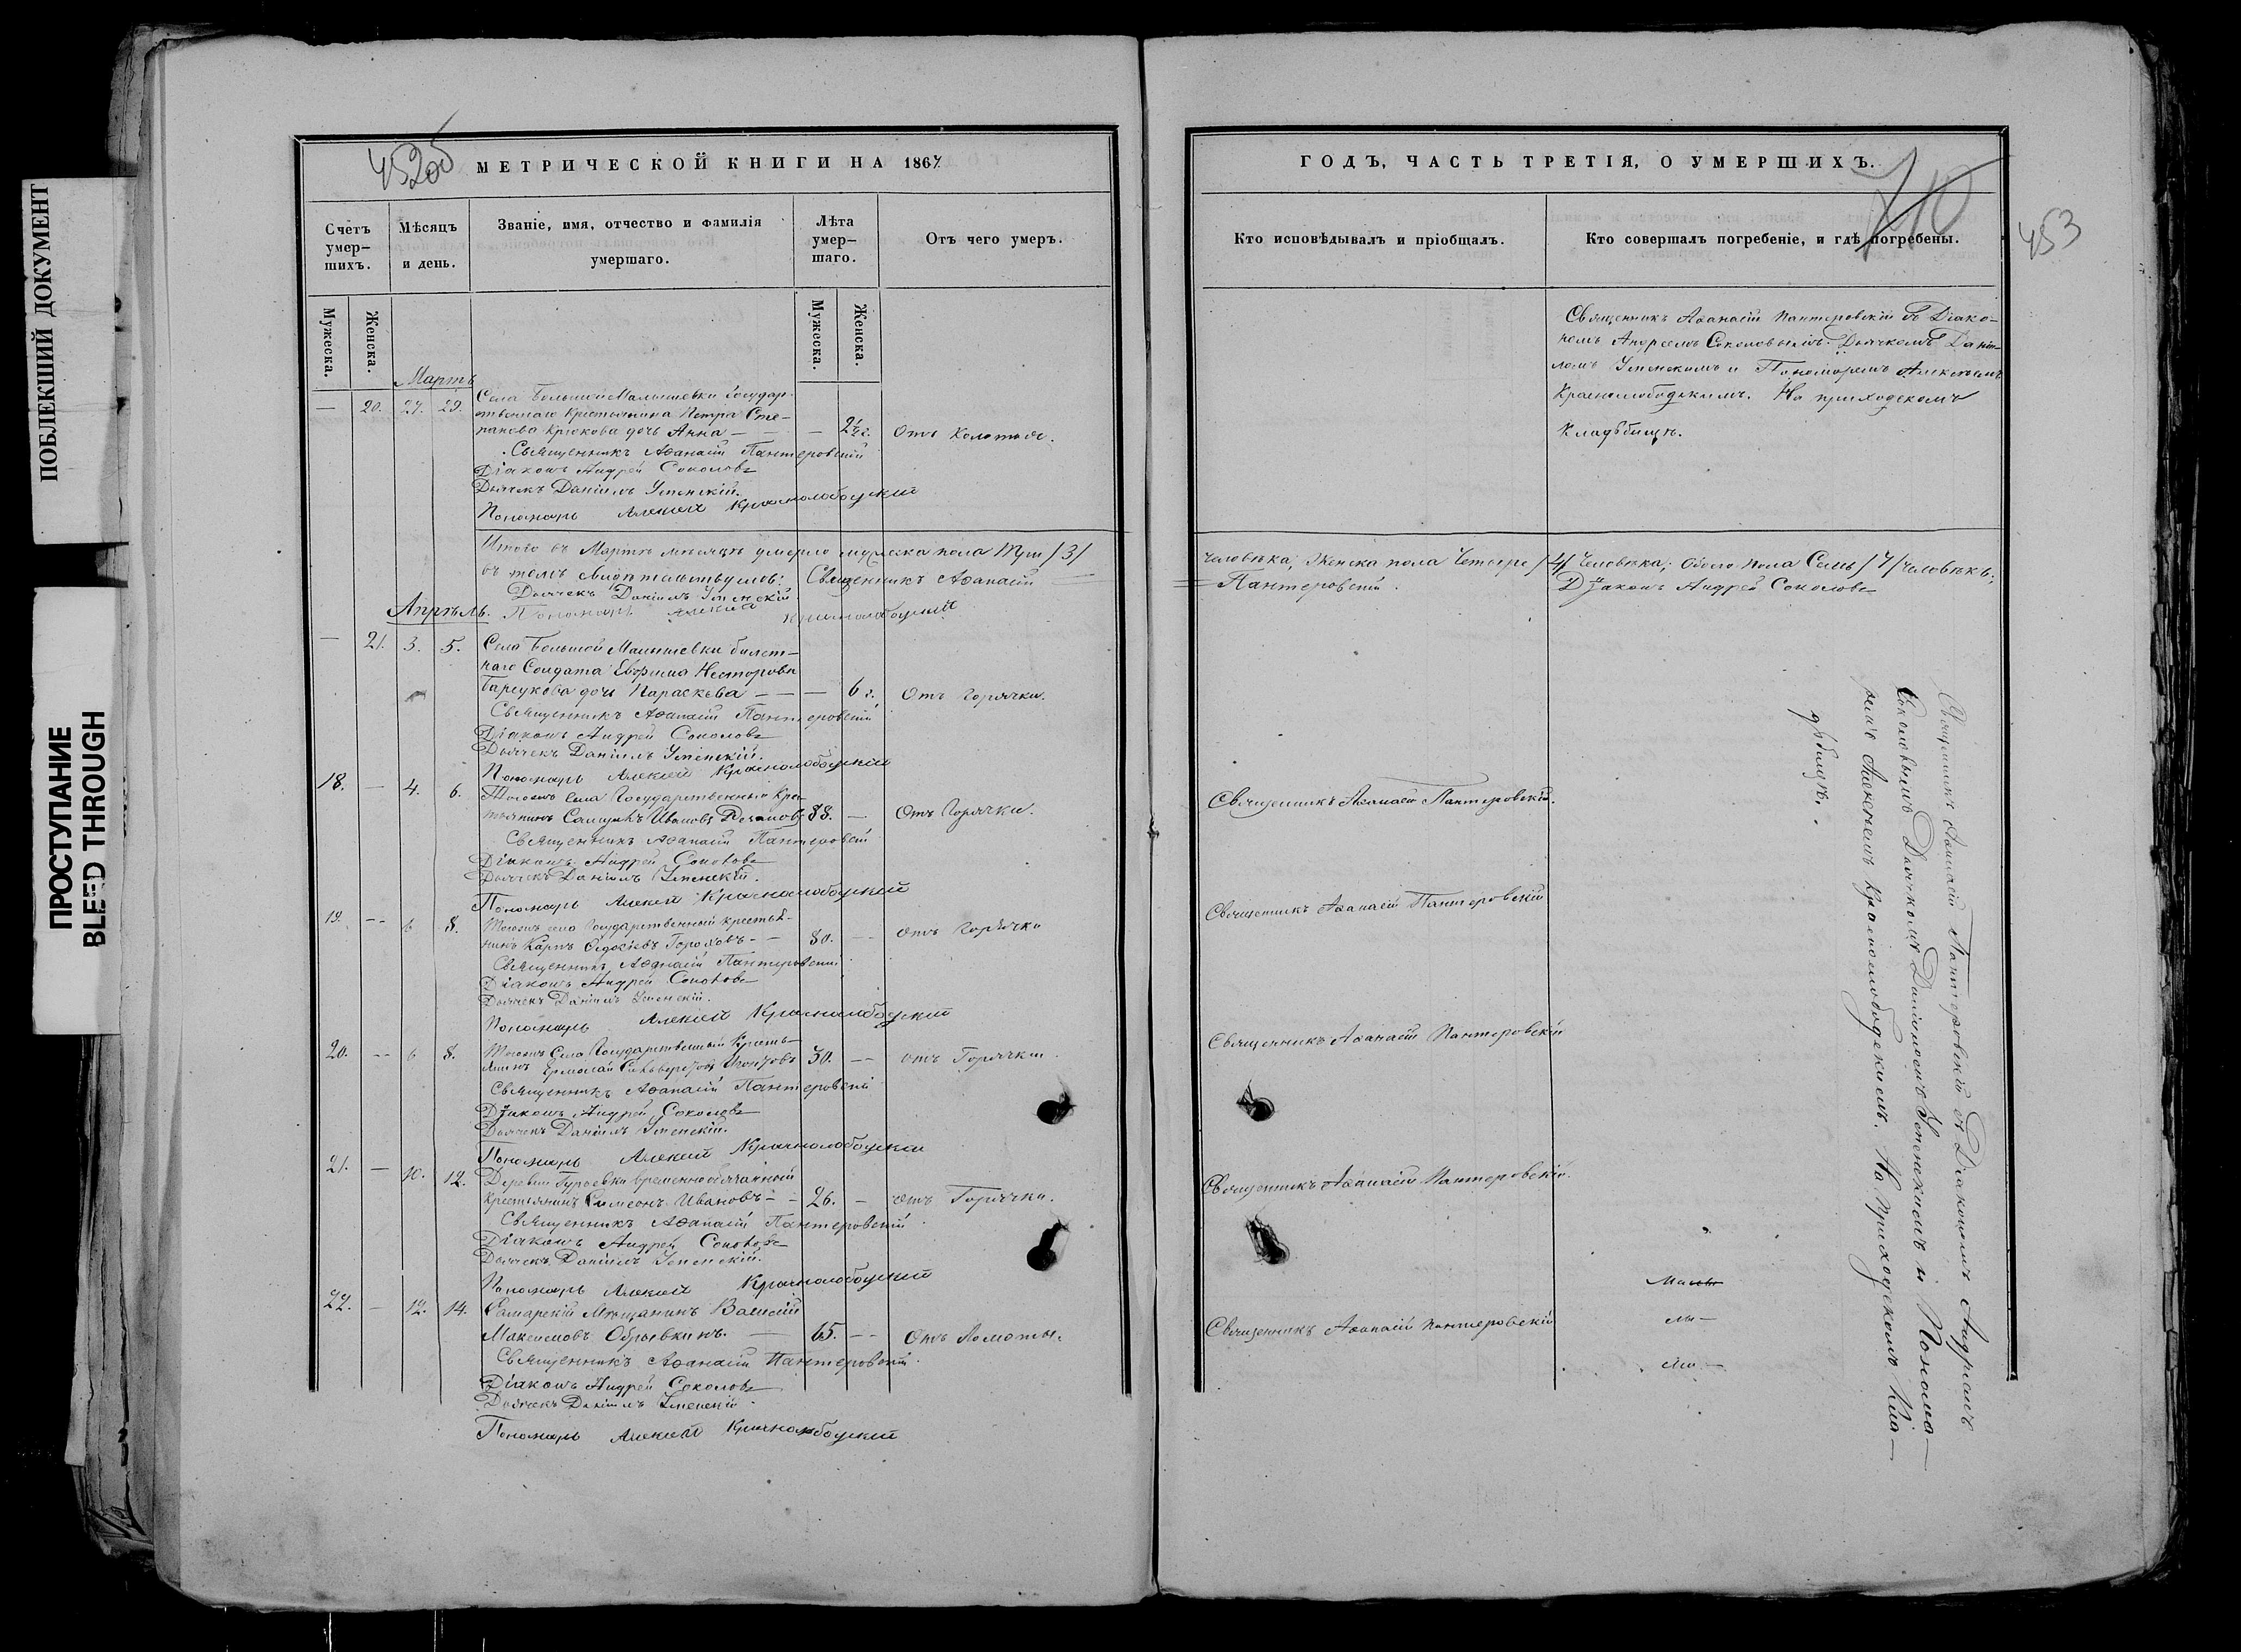 ПОБЛЕКШИЙ ДОКУМЕНТ
ПРОСТУПАНИЕ
BLEED THROUGH
МЕТРИЧЕСКОЙ КНИГИ НА 1867
Счетъ умер-шихъ.
Мѣсяцъ и день.
Званіе, имя, отчество и фамилія умершаго.
Лѣта умер-шаго.
Отъ чего умеръ.
Мужеска.
Женска.
Мужеска.
Женска.
Мартъ
Села Большой Малышевки Государ-
— 20. 27. 29. ственнаго Крестьянина Петра Сте-
панова Крюкова дочь Анна — — 2½ г. Отъ Колотья.
Священникъ Аѳанасій Пантеровскій
Діаконъ Андрей Соколовъ
Дьячекъ Даніилъ Успенскій.
Пономарь Алексѣй Краснослободскій
Итого въ Мартѣ мѣсяцѣ умерло мужеска пола Три /3/
въ томъ свидѣтельствуемъ: Священникъ Аѳанасій
Дьячекъ Даніилъ Успенскій
Апрѣль. Пономарь Алексѣй Краснослободскій
— 21. 3. 5. Села Большой Малышевки билет-
наго Солдата Евфима Несторова
Барсукова дочь Параскева — — — 6 г. Отъ горячки.
Священникъ Аѳанасій Пантеровскій
Діаконъ Андрей Соколовъ
Дьячекъ Даніилъ Успенскій.
Пономарь Алексѣй Краснослободскій
18. — 4. 6. Тогожъ села Государственный Кре-
стьянинъ Ивановъ 88. — Отъ Горячки.
Священникъ Аѳанасій Пантеровскій
Діаконъ Андрей Соколовъ
Дьячекъ Даніилъ Успенскій.
Пономарь Алексѣй Краснослободскій
19. — 6 8. Тогожъ села Государственный крестья-
нинъ Карпъ Гороховъ — 80. — Отъ Горячки
Священникъ Аѳанасій Пантеровскій
Діаконъ Андрей Соколовъ
Дьячекъ Даніилъ Успенскій.
Пономарь Алексѣй Краснослободскій
20. — 6 8. Тогожъ Села Государственный Кресть-
янинъ Ермолай 30. — отъ Горячки.
Священникъ Аѳанасій Пантеровскій
Діаконъ Андрей Соколовъ
Дьячекъ Даніилъ Успенскій.
Пономарь Алексѣй Краснослободскій
21. — 10. 12. Деревни временнообязанный
Крестьянинъ Симеонъ Ивановъ — 26. — отъ Горячки.
Священникъ Аѳанасій Пантеровскій
Діаконъ Андрей Соколовъ
Дьячекъ Даніилъ Успенскій.
Пономарь Алексѣй Краснослободскій
22. — 12. 14. Самарскій Мѣщанинъ Василій
Максимовъ Обрывкинъ. — 65. — Отъ Ломоты.
Священникъ Аѳанасій Пантеровскій.
Діаконъ Андрей Соколовъ
Дьячекъ Даніилъ Успенскій.
Пономарь Алексѣй Краснослободскій
ГОДЪ, ЧАСТЬ ТРЕТІЯ, О УМЕРШИХЪ.
710
453
Кто исповѣдывалъ и пріобщалъ.
Кто совершалъ погребеніе, и гдѣ погребены.
Священникъ Аѳанасій Пантеровскій съ Діако-
номъ Андреемъ Соколовымъ. Дьячкомъ Дані-
ломъ Успенскимъ и Пономоремъ Алексѣемъ
Краснослободскимъ. На приходскомъ
Кладбищѣ.
человѣка; Женска пола Четыре /4/ Человѣка; Обоего пола Семь /7/ человѣкъ;
Пантеровскій. Діаконъ Андрей Соколовъ
Священникъ Аѳанасій Пантеровскій.
Священникъ Аѳанасій Пантеровскій
Священникъ Аѳанасій Пантеровскій
Священникъ Аѳанасій Пантеровскій.
Священникъ Аѳанасій Пантеровскій
Священникъ Аѳанасій Пантеровскій съ Діакономъ Андреемъ
Соколовымъ Дьячкомъ Даніиломъ Успенскимъ и Понома-
ремъ Алексѣемъ Краснослободскимъ. На Приходскомъ Кла-
дбищѣ.